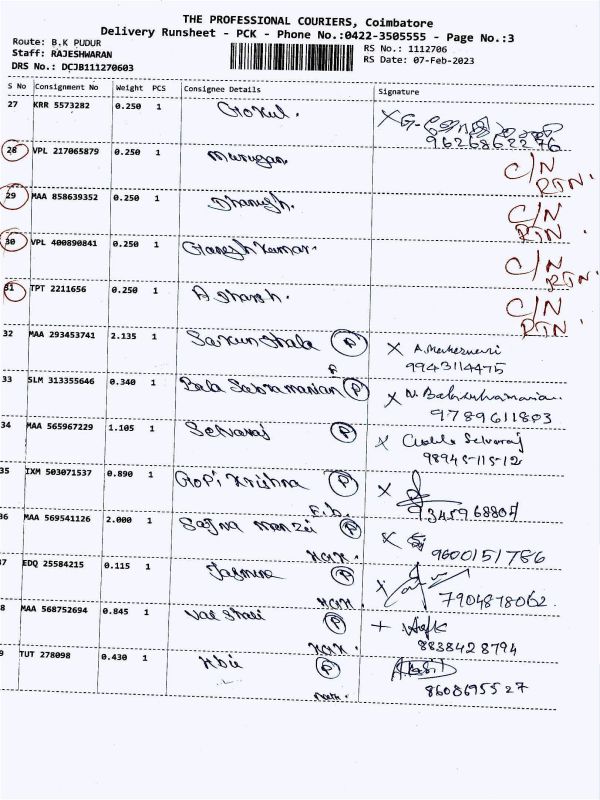 THE PROFESSIONAL COURIERS, Coimbatore
Delivery Runsheet - PCK - Phone No.:0422-3505555 - Page No.:3
Route: B.K PUDUR
RS No.: 1112706
Staff: RAJESHWARAN
RS Date: 07-Feb-2023
DRS No.: DCJB111270603
S No Consignment No Weight PCS Consignee Details Signature
27 KRR 5573282 0.250 1 Gokul.
9626862276
28 VPL 217065879 0.250 1 Murugan. C/N
RTN.
29 MAA 858639352 0.250 1 Dhanush. C/N
RTN.
30 VPL 400890841 0.250 1 Ganesh Kumar. C/N
RTN.
31 TPT 2211656 0.250 1 C/N
RTN.
32 MAA 293453741 2.135 1 P X
9943114475
33 SLM 313355646 0.340 1 Bala Subramanian P X
9789611803
34 MAA 565967229 1.105 1 Selvaraj P X Selvaraj
98945-115-12
35 IXM 503071537 0.890 1 Gopi Krishna P X
9345968807
36 MAA 569541126 2.000 1 P X
9600151786
37 EDQ 25584215 0.115 1 P X
7904878062
38 MAA 568752694 0.845 1 P
8838428794
39 TUT 278098 0.430 1 P
8608695527